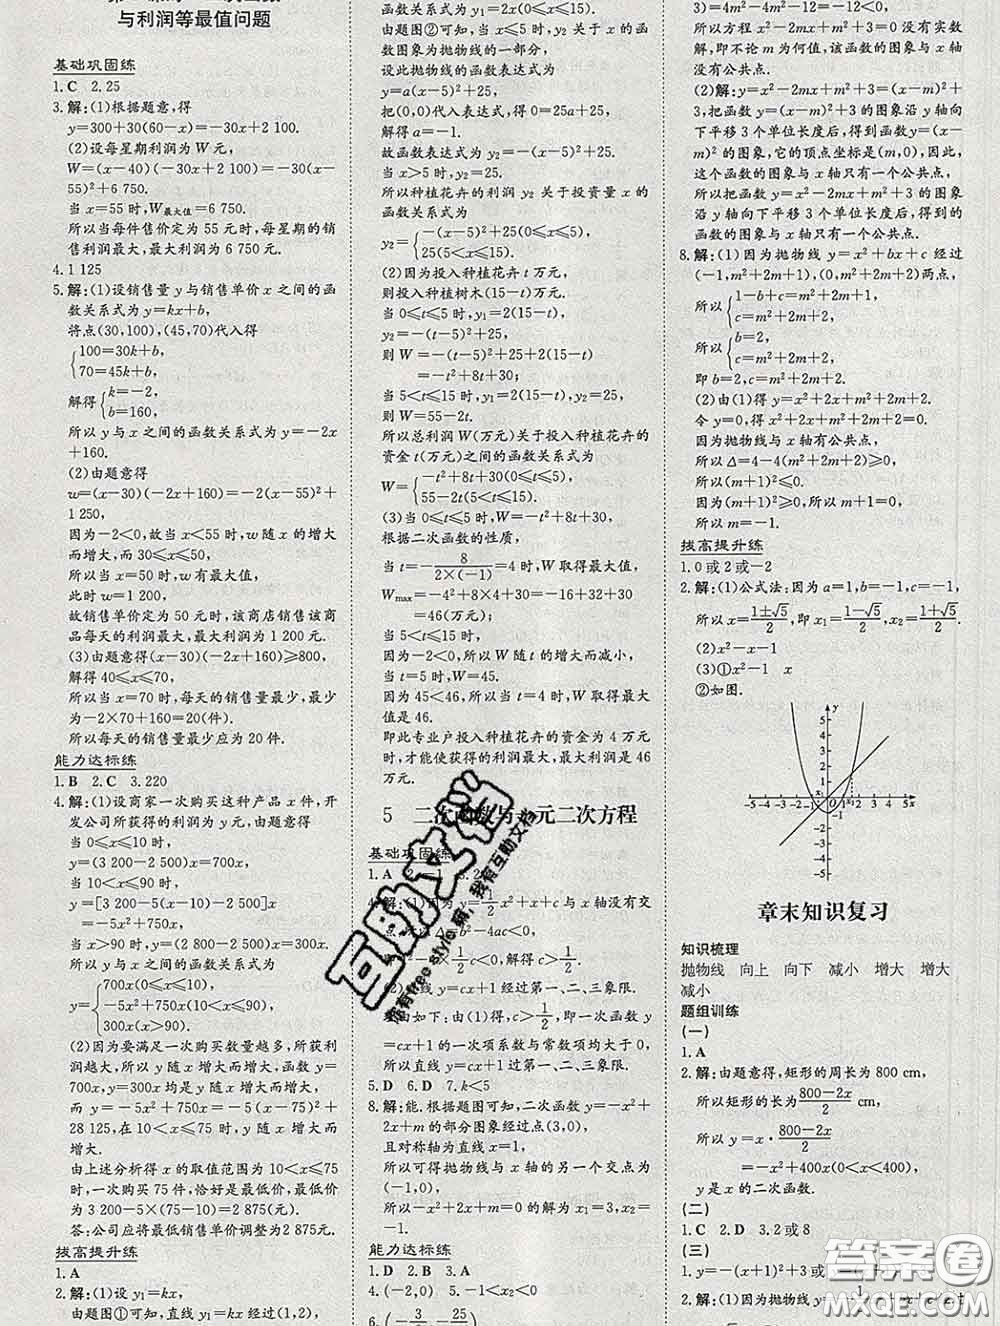 与利润等最值问题
基础巩固练
1.C 2.25
3.解:(1)根据题意得
y=300+30(60-x)=-30x+2 100.
(2)设每星期利润为W元,
W=(x-40)(-30x+2 100)=-30(x-
55)²+6 750.
当x=55时,W最大值=6 750.
所以当每件售价定为55元时,每星期的销
售利润最大,最大利润为6 750元.
4.1 125
5.解:(1)设销售量y与销售单价x之间的函
数关系式为y=kx+b,
将点(30,100),(45,70)代入得
{100=30k+b,
70=45k+b,
解得{k=-2,
b=160,
所以y与x之间的函数关系式为y=-2x
+160.
(2)由题意得
w=(x-30)(-2x+160)=-2(x-55)²+
1 250,
因为-2<0,故当x<55时,w随x的增大
而增大,而30≤x≤50,
所以当x=50时,w有最大值,
此时w=1 200,
故销售单价定为50元时,该商店销售该商
品每天的利润最大,最大利润为1 200元.
(3)由题意得(x-30)(-2x+160)≥800,
解得40≤x≤70.
所以当x=70时,每天的销售量最少,最少
为-2×70+160=20(件).
所以每天的销售量最少应为20件.
能力达标练
1.B 2.C 3.220
4.解:(1)设商家一次购买这种产品x件,开
发公司所获得的利润为y元,由题意得
当0≤x≤10时,
y=(3 200-2 500)x=700x,
当10<x≤90时,
y=[3 200-5(x-10)-2 500]x
=-5x²+750x,
当x>90时,y=(2 800-2 500)x=300x.
所以函数关系式为
y={700x(0≤x≤10),
-5x²+750x(10<x≤90),
300x(x>90).
(2)因为要满足一次购买数量越多,所获利
润越大,所以y随x增大而增大,函数y=
700x,y=300x均是y随x增大而增大,
而y=-5x²+750x=-5(x-75)²+
28 125,在10<x≤75时,y随x增大而
增大.
由上述分析得x的取值范围为10<x≤75
时,一次购买75件,恰好是最低价,最低价
为3 200-5×(75-10)=2 875(元).
答:公司应将最低销售单价调整为2 875元.
拔高提升练
1.A
2.解:(1)设y₁=kx,
由题图①可知,直线y₁=kx经过(1,2),
由题图②可知,当x≤5时,抛物线的顶点为
设此抛物线的函数表达式为
y=a(x-5)²+25,
把(0,0)代入表达式,得0=25a+25,
解得a=-1.
故函数表达式为y₂=-(x-5)²+25.
当x>5时,y₂=25.
所以种植花卉的利润y₂关于投资量x的
函数关系式为
y₂={-(x-5)²+25(0≤x≤5),
25(x>5).
(2)因为投入种植花卉t万元,
则投入种植树木(15-t)万元.
当0≤t≤5时,y₁=2(15-t),
y₂=-(t-5)²+25,
则W=-(t-5)²+25+2(15-t)
=-t²+8t+30;
当5<t≤15时,y₁=2(15-t),y₂=25,
则W=55-2t.
所以总利润W(万元)关于投入种植花卉的
资金t(万元)之间的函数关系式为
W={-t²+8t+30(0≤t≤5),
55-2t(5<t≤15).
(3)当0≤t≤5时,W=-t²+8t+30,
根据二次函数的性质,
当t=-8/(2×(-1))=4时,W取得最大值,
Wmax=-4²+8×4+30=-16+32+30
=46(万元);
当5<t≤15时,
-2<0,所以W随t的增大而减小,
当t=5时,W=45.
因为45<46,所以当t=4时,W取得最大
值是46.
即此专业户投入种植花卉的资金为4万元
时,才能使获得的利润最大,最大利润是46
万元.
5 二次函数与一元二次方程
基础巩固练
+x+c与x轴没有交
b²-4ac<0,
所以1-4×1/2c<0,解得c>1/2.
直线y=cx+1经过第一、二、三象限.
理由如下:由(1)得,c>1/2,即一次函数y
=cx+1的一次项系数与常数项均大于0,
所以直线y=cx+1经过第一、二、三象限.
5.D 6.D 7.k<5
8.解:能.根据题图可知,二次函数y=-x²+
2x+m的部分图象经过点(3,0),
且对称轴为直线x=1,
所以可得抛物线与x轴的另一个交点为
(-1,0),
所以-x²+2x+m=0的解为x₁=3,x₂=
-1.
能力达标练
1.D 2.B 3.A
4.(-2,0) 5.-1<x₂<0
6.(-3/2,-25/4)
3)=4m²-4m²-12=-12<0,
所以方程x²-2mx+m²+3=0没有实数
解,即不论m为何值,该函数的图象与x轴
没有公共点.
(2)解:y=x²-2mx+m²+3=(x-m)²+
3,把函数y=(x-m)²+3的图象沿y轴向
下平移3个单位长度后,得到函数y=(x-
m)²的图象,它的顶点坐标是(m,0),因此,
这个函数的图象与x轴只有一个公共点,
所以把函数y=x²-2mx+m²+3的图象
沿y轴向下平移3个单位长度后,得到的
函数的图象与x轴只有一个公共点.
8.解:(1)因为抛物线y=x²+bx+c经过
(-1,m²+2m+1),(0,m²+2m+2)两点,
所以{1-b+c=m²+2m+1,
c=m²+2m+2;
所以{b=2,
c=m²+2m+2,
即b=2,c=m²+2m+2.
(2)由(1)得y=x²+2x+m²+2m+2.
令y=0,得x²+2x+m²+2m+2=0.
因为抛物线与x轴有公共点,
所以Δ=4-4(m²+2m+2)≥0,
所以(m+1)²≤0.
因为(m+1)²≥0,所以m+1=0,
所以m=-1.
拔高提升练
1.0或2或-2
2.解:(1)公式法:因为a=1,b=-1,c=-1,
所以x=(1±√5)/2,即x₁=(1-√5)/2,x₂=(1+√5)/2.
(2)x²-x-1
(3)①x²-1 x
②如图.
章末知识复习
知识梳理
抛物线 向上 向下 减小 增大 增大
减小
题组训练
(一)
1.A
2.解:由题意得,矩形的周长为800 cm,
所以矩形的长为(800-2x)/2 cm,
所以y=x·(800-2x)/2
=-x²+400x(0<x<400).
y是x的二次函数.
(二)
1.C 2.D 3.2或8
(三)
2.解:(1)因为抛物线
互助文档
我有互助文档
答案圈
MXQE.COM